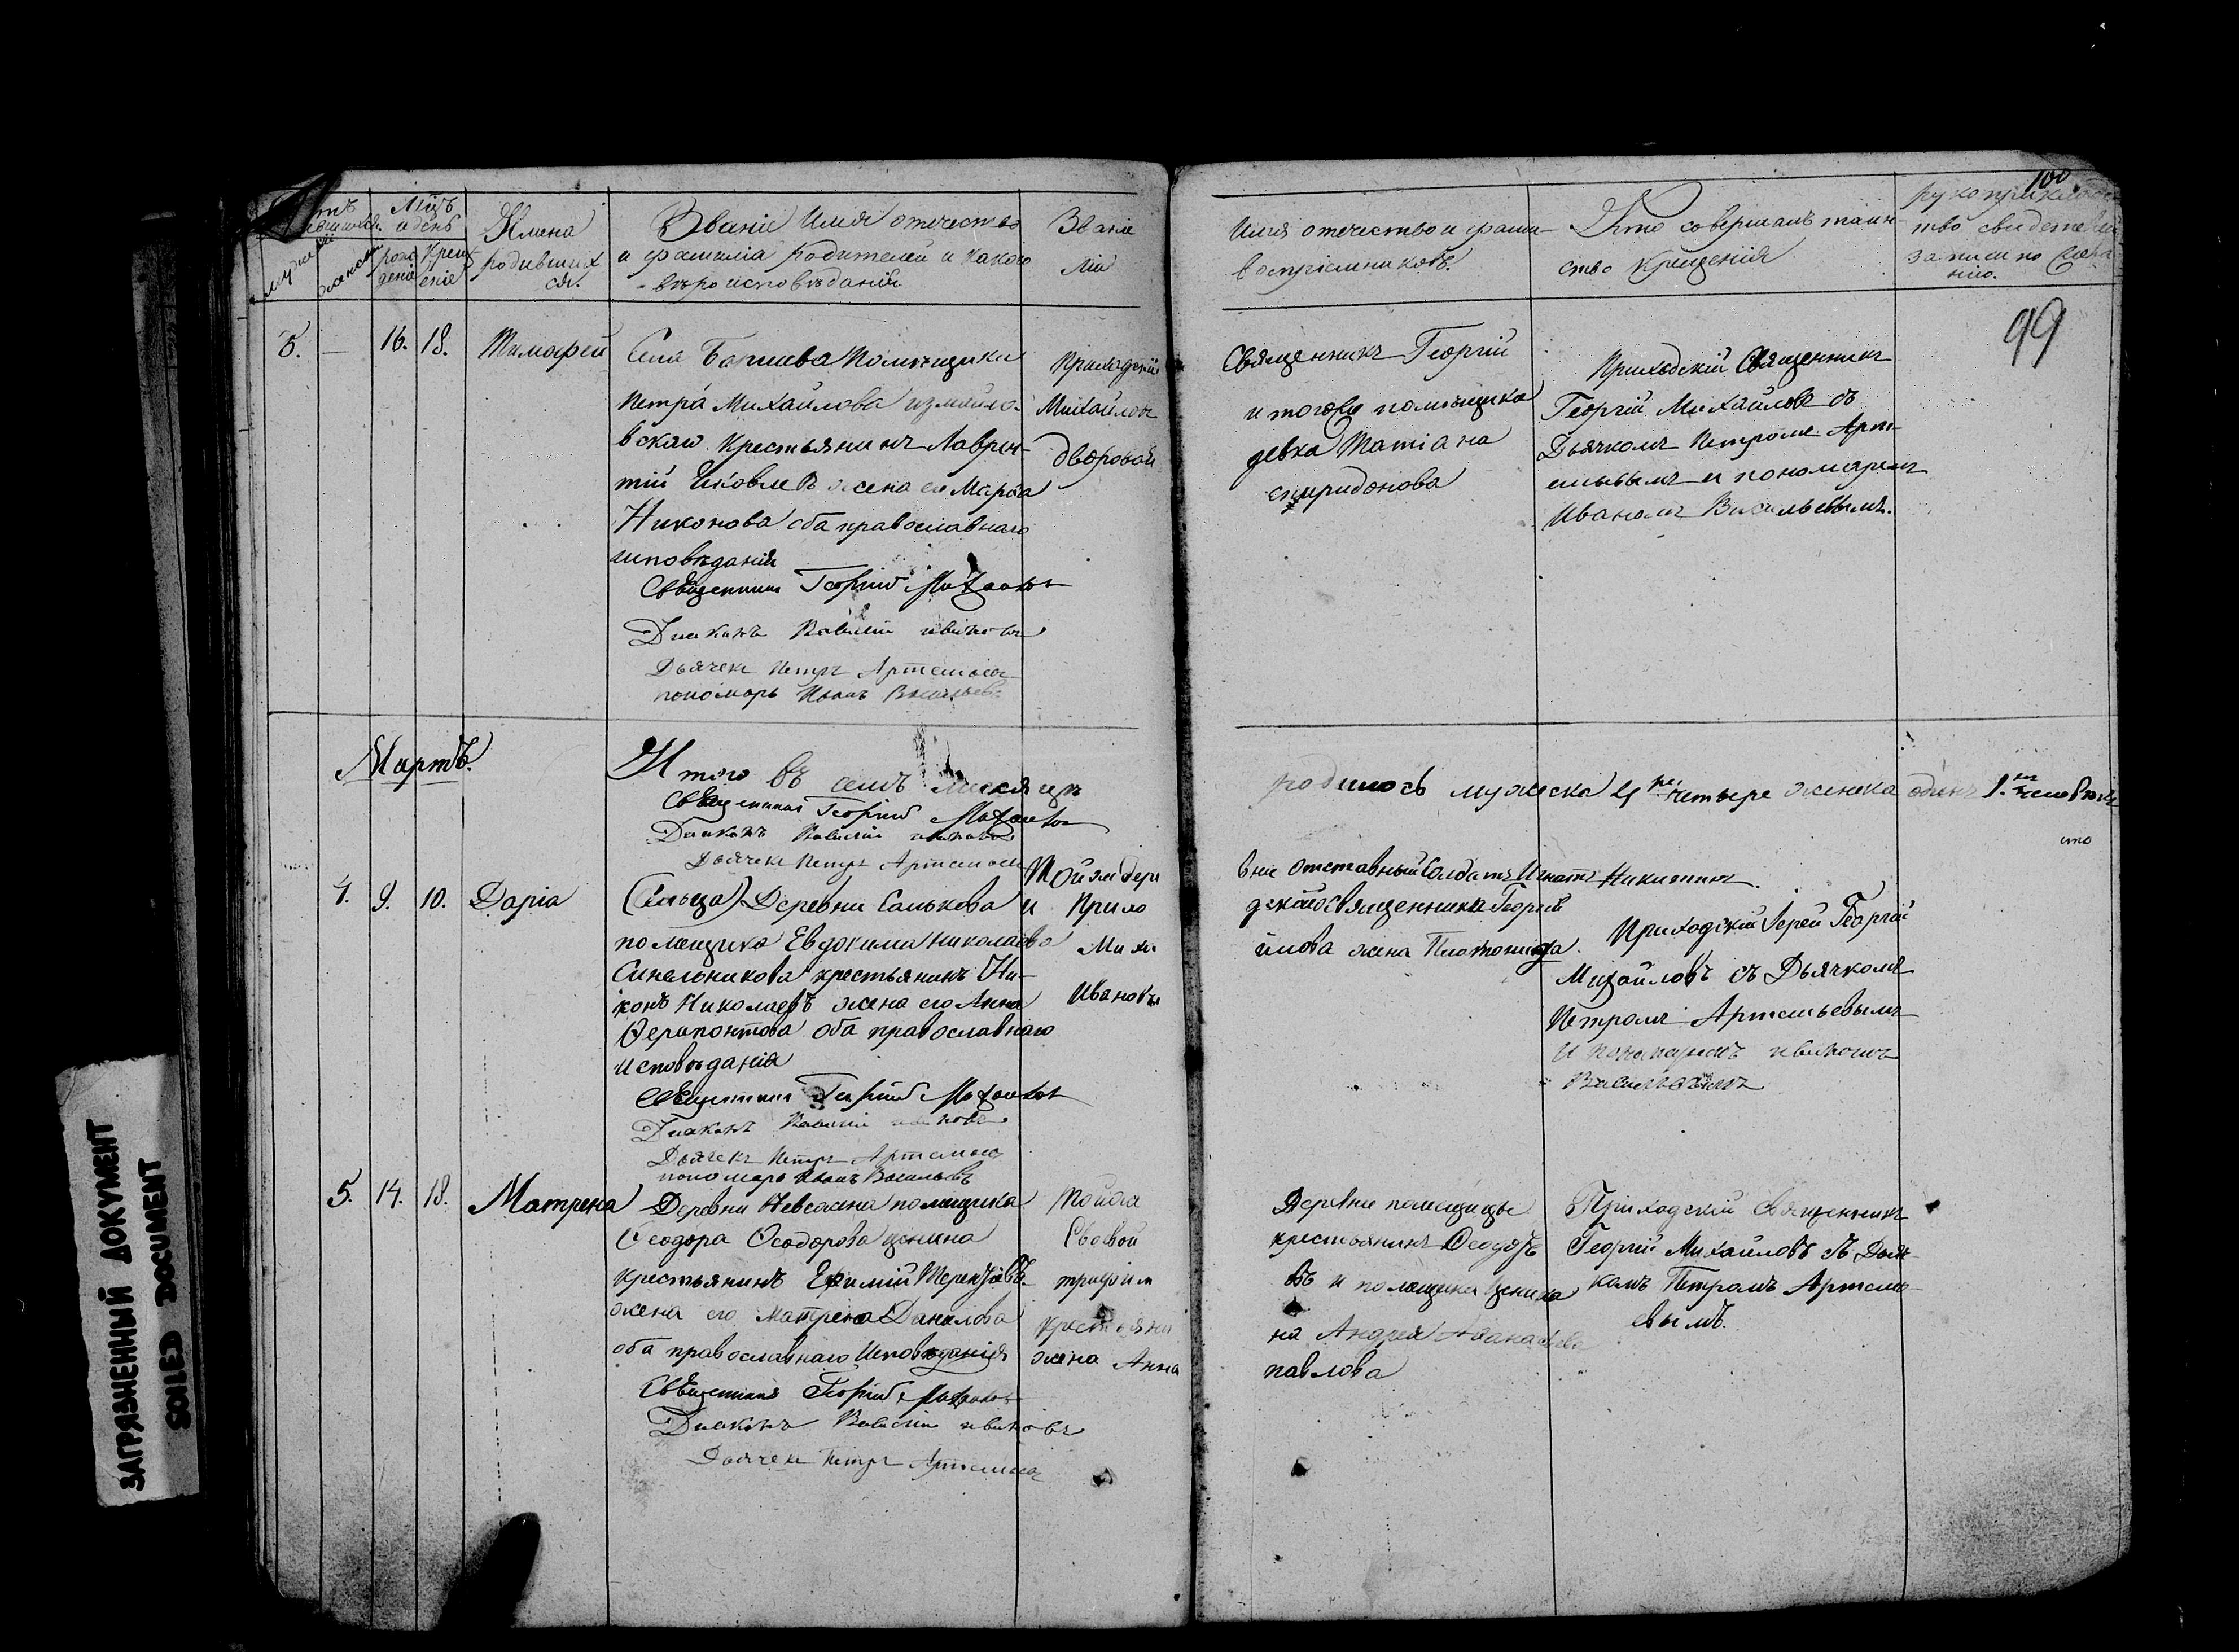 100
99
Мцъ и день
рожденіе
Крещеніе
Имена родившихся.
Званіе Имя отечество
и фамиліа родителей и какого
вѣроисповѣданія
Званіе
Имя отечество и фами-
воспріемниковъ.
Кто совершалъ таин-
ство Крещенія
рукоприкладс
тво свидетелей
записи по
6.
—
16.
18.
Тимофей
Села помѣщика
Петра Михайлова измайло-
вскаго Крестьянинъ Лаврен-
тій жена его Марѳа
Никонова оба православнаго
исповѣданія
Священникъ Георгій Михайловъ
Диаконъ Василій ивановъ
Дьячекъ Петръ Артемьевъ
пономарь Иванъ Васильевъ
Приходскій
Михайловъ
дворовая
Священникъ Георгій
и тогоже помѣщика
девка Татіана
спиридонова
Приходскій Священникъ
Георгій Михайловъ съ
Дьячкомъ Петромъ Арте-
мьевымъ и пономаремъ
Иваномъ Васильевымъ.
Мартъ.
Итого въ семъ месяцѣ
родилось мужеска 4 четыре женска одинъ 1.
Священникъ Георгій Михайловъ
Диаконъ Василій ивановъ
Дьячекъ Петръ Артемьевъ
4.
9.
10.
Даріа
(Сельца) Деревни Санькова
помещика Евдокима Николаева
Синельникова крестьянинъ Ни-
конъ Николаевъ жена его Анна
Ѳерапонтова оба православнаго
исповѣданія
Священникъ Георгій Михайловъ
Диаконъ Василій ивановъ
Дьячекъ Петръ Артемьевъ
пономарь Иванъ Васильевъ
Той же дере
и Прихо
Миха
Иванова
вни отставный Солдатъ Игнатъ Никитинъ.
дскаго священника Георгія
йлова жена
Приходскій Іерей Георгій
Михайловъ съ Дьячкомъ
Петромъ Артемьевымъ
и пономаремъ иваномъ
Васильевымъ
5.
14.
18.
Матрена
Деревни помещика
Ѳеодора Ѳеодорова ценина
крестьянинъ Ефимій Терентіевъ
жена его Матрена Данилова
оба православнаго Исповѣданія
Священникъ Георгій Михайловъ
Диаконъ Василій ивановъ
Дьячекъ Петръ Артемьевъ
Тойже
трифим
крестьяни
жена Анна
Деревни помещицы
крестьянинъ Ѳеодоръ
въ и помещика ценина
на Андрея Аѳанасьева
павлова
Приходскій священникъ
Георгій Михайловъ съ Дьяч-
комъ Петромъ Артемь-
евымъ.
ЗАГРЯЗНЕННЫЙ ДОКУМЕНТ
SOILED DOCUMENT